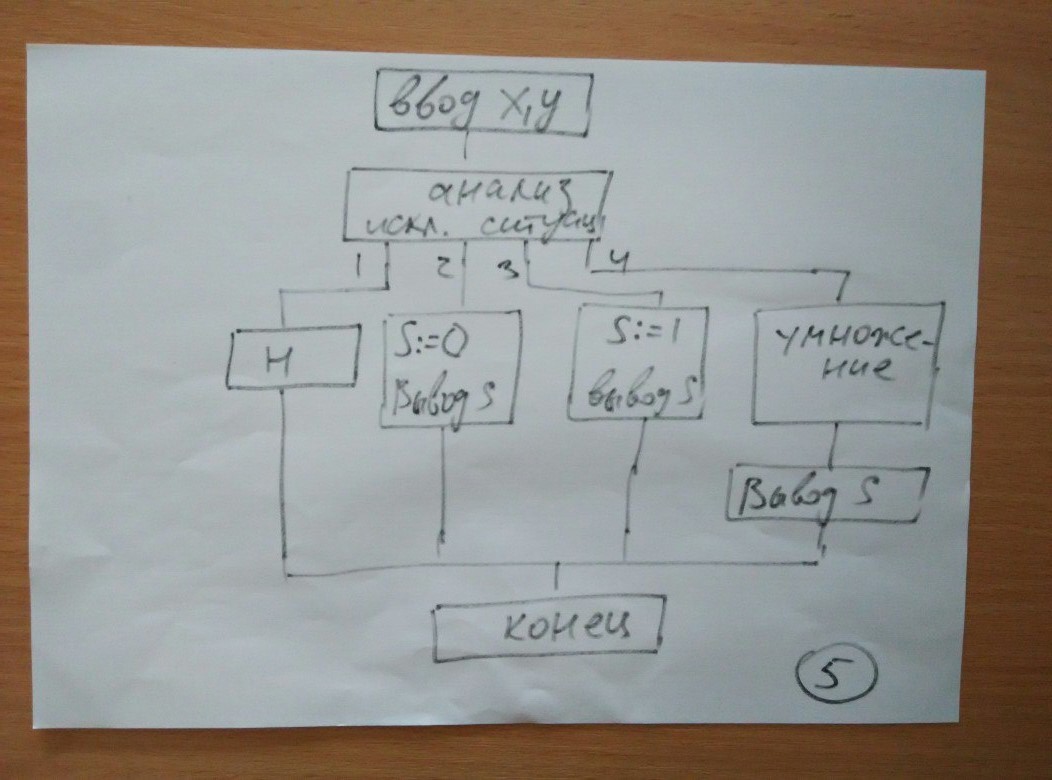 ввод x,y
анализ
искл. ситуац
1 2 3 4
Н
S:=0
Вывод S
S:=1
вывод S
умноже-
ние
Вывод S
конец
5